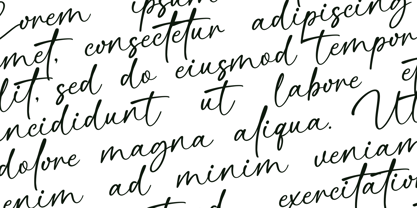 Lorem ipsum
met, consectetur adipiscing
lit, sed do eiusmod tempor
ncididunt ut labore et
dolore magna aliqua. Ut
enim ad minim veniam
exercitation